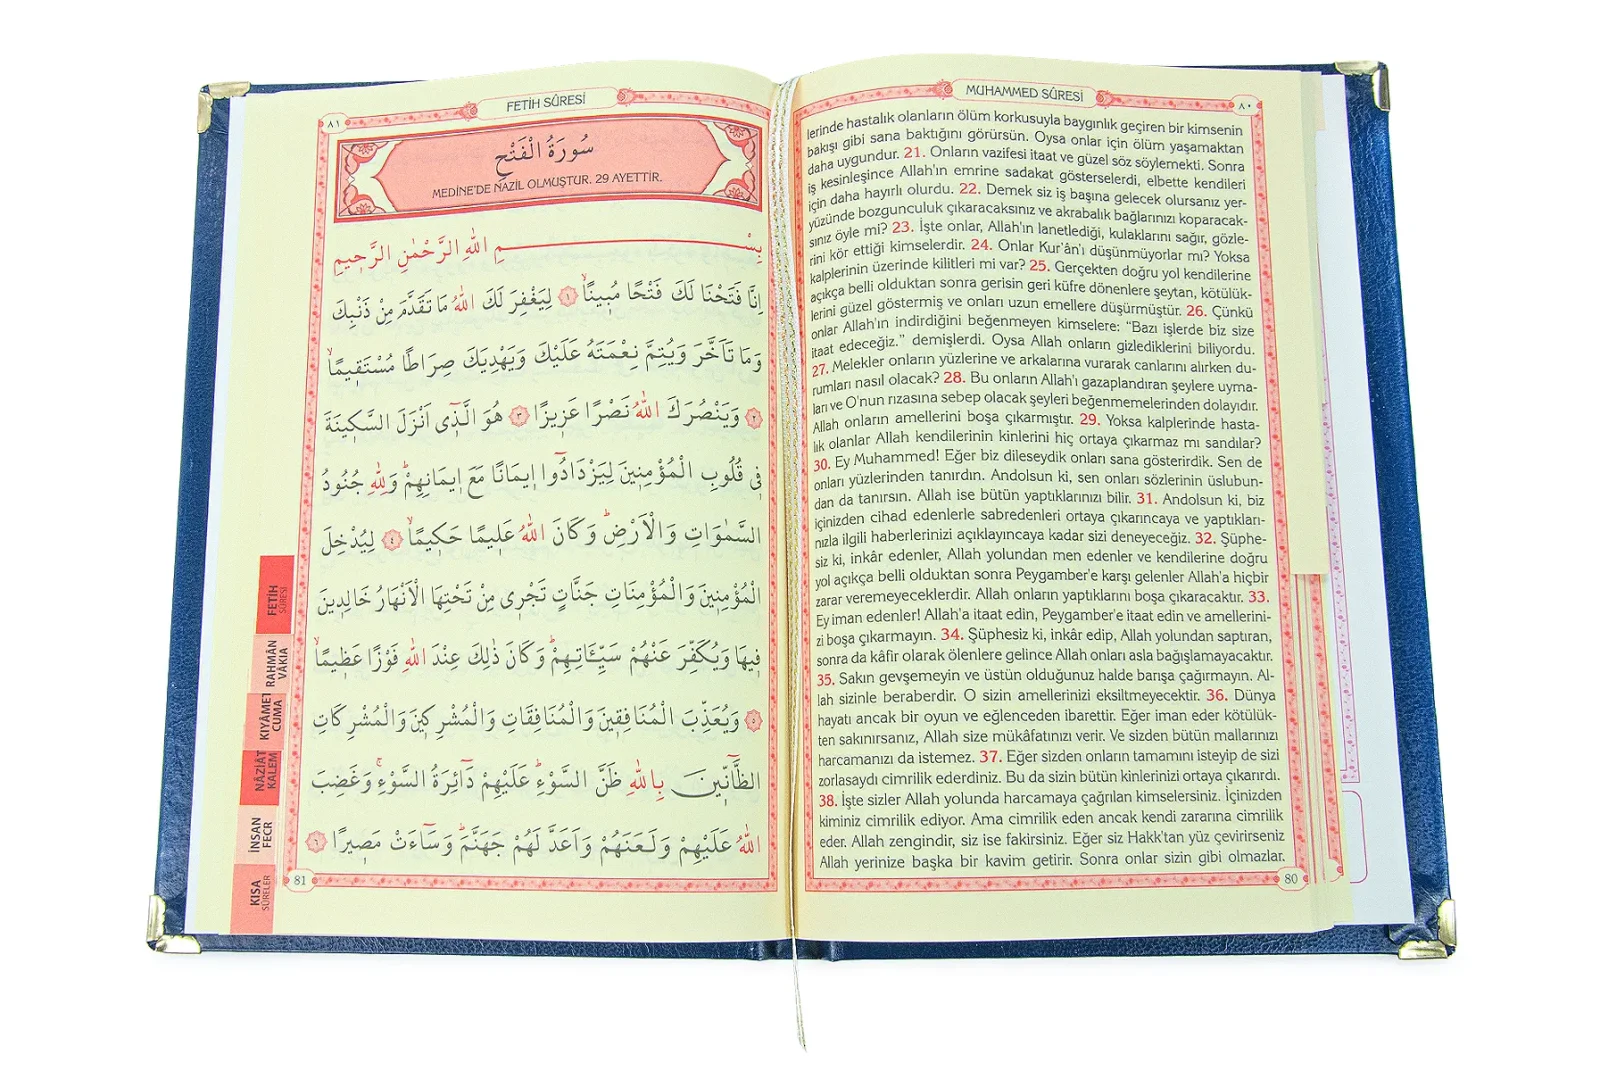 MUHAMMED SÛRESİ
٨٠
lerinde hastalık olanların ölüm korkusuyla baygınlık geçiren bir kimsenin
bakışı gibi sana baktığını görürsün. Oysa onlar için ölüm yaşamaktan
daha uygundur. 21. Onların vazifesi itaat ve güzel söz söylemekti. Sonra
iş kesinleşince Allah'ın emrine sadakat gösterselerdi, elbette kendileri
için daha hayırlı olurdu. 22. Demek siz iş başına gelecek olursanız yer-
yüzünde bozgunculuk çıkaracaksınız ve akrabalık bağlarınızı koparacak-
sınız öyle mi? 23. İşte onlar, Allah'ın lanetlediği, kulaklarını sağır, gözle-
rini kör ettiği kimselerdir. 24. Onlar Kur'ân'ı düşünmüyorlar mı? Yoksa
kalplerinin üzerinde kilitleri mi var? 25. Gerçekten doğru yol kendilerine
açıkça belli olduktan sonra gerisin geri küfre dönenlere şeytan, kötülük-
lerini güzel göstermiş ve onları uzun emellere düşürmüştür. 26. Çünkü
onlar Allah'ın indirdiğini beğenmeyen kimselere: "Bazı işlerde biz size
itaat edeceğiz." demişlerdi. Oysa Allah onların gizlediklerini biliyordu.
27. Melekler onların yüzlerine ve arkalarına vurarak canlarını alırken du-
rumları nasıl olacak? 28. Bu onların Allah'ı gazaplandıran şeylere uyma-
ları ve O'nun rızasına sebep olacak şeyleri beğenmemelerinden dolayıdır.
Allah onların amellerini boşa çıkarmıştır. 29. Yoksa kalplerinde hasta-
lık olanlar Allah kendilerinin kinlerini hiç ortaya çıkarmaz mı sandılar?
30. Ey Muhammed! Eğer biz dileseydik onları sana gösterirdik. Sen de
onları yüzlerinden tanırdın. Andolsun ki, sen onları sözlerinin üslubun-
dan da tanırsın. Allah ise bütün yaptıklarınızı bilir. 31. Andolsun ki, biz
içinizden cihad edenlerle sabredenleri ortaya çıkarıncaya ve yaptıkları-
nızla ilgili haberlerinizi açıklayıncaya kadar sizi deneyeceğiz. 32. Şüphe-
siz ki, inkâr edenler, Allah yolundan men edenler ve kendilerine doğru
yol açıkça belli olduktan sonra Peygamber'e karşı gelenler Allah'a hiçbir
zarar veremeyeceklerdir. Allah onların yaptıklarını boşa çıkaracaktır. 33.
Ey iman edenler! Allah'a itaat edin, Peygamber'e itaat edin ve amellerini-
zi boşa çıkarmayın. 34. Şüphesiz ki, inkâr edip, Allah yolundan saptıran,
sonra da kâfir olarak ölenlere gelince Allah onları asla bağışlamayacaktır.
35. Sakın gevşemeyin ve üstün olduğunuz halde barışa çağırmayın. Al-
lah sizinle beraberdir. O sizin amellerinizi eksiltmeyecektir. 36. Dünya
hayatı ancak bir oyun ve eğlenceden ibarettir. Eğer iman eder kötülük-
ten sakınırsanız, Allah size mükâfatınızı verir. Ve sizden bütün mallarınızı
harcamanızı da istemez. 37. Eğer sizden onların tamamını isteyip de sizi
zorlasaydı cimrilik ederdiniz. Bu da sizin bütün kinlerinizi ortaya çıkarırdı.
38. İşte sizler Allah yolunda harcamaya çağrılan kimselersiniz. İçinizden
kiminiz cimrilik ediyor. Ama cimrilik eden ancak kendi zararına cimrilik
eder. Allah zengindir, siz ise fakirsiniz. Eğer siz Hakk'tan yüz çevirirseniz
Allah yerinize başka bir kavim getirir. Sonra onlar sizin gibi olmazlar.
80
FETİH SÛRESİ
٨١
سُورَةُ الْفَتْحِ
MEDİNE'DE NÂZİL OLMUŞTUR. 29 AYETTİR.
بِسْمِ اللهِ الرَّحْمٰنِ الرَّحِيمِ
اِنَّا فَتَحْنَا لَكَ فَتْحًا مُبِينًاۙ ١ لِيَغْفِرَ لَكَ اللهُ مَا تَقَدَّمَ مِنْ ذَنْبِكَ
وَمَا تَاَخَّرَ وَيُتِمَّ نِعْمَتَهُ عَلَيْكَ وَيَهْدِيَكَ صِرَاطًا مُسْتَقِيمًاۙ
٢ وَيَنْصُرَكَ اللهُ نَصْرًا عَزِيزًا ٣ هُوَ الَّذِٓي اَنْزَلَ السَّكِينَةَ
فِي قُلُوبِ الْمُؤْمِنِينَ لِيَزْدَادُٓوا اِيمَانًا مَعَ اِيمَانِهِمْۜ وَلِلّٰهِ جُنُودُ
السَّمٰوَاتِ وَالْاَرْضِۜ وَكَانَ اللهُ عَلِيمًا حَكِيمًاۙ ٤ لِيُدْخِلَ
الْمُؤْمِنِينَ وَالْمُؤْمِنَاتِ جَنَّاتٍ تَجْرِي مِنْ تَحْتِهَا الْاَنْهَارُ خَالِدِينَ
فِيهَا وَيُكَفِّرَ عَنْهُمْ سَيِّـَٔاتِهِمْۜ وَكَانَ ذٰلِكَ عِنْدَ اللهِ فَوْزًا عَظِيمًاۙ
٥ وَيُعَذِّبَ الْمُنَافِقِينَ وَالْمُنَافِقَاتِ وَالْمُشْرِكِينَ وَالْمُشْرِكَاتِ
الظَّٓانِّينَ بِاللهِ ظَنَّ السَّوْءِۜ عَلَيْهِمْ دَٓائِرَةُ السَّوْءِۚ وَغَضِبَ
اللهُ عَلَيْهِمْ وَلَعَنَهُمْ وَاَعَدَّ لَهُمْ جَهَنَّمَۜ وَسَٓاءَتْ مَصِيرًا ٦
81
FETİH
SÛRESİ
RAHMÂN
VÂKIA
KIYÂMET
CUMA
NÂZİÂT
KALEM
İNSAN
FECR
KISA
SÛRELER